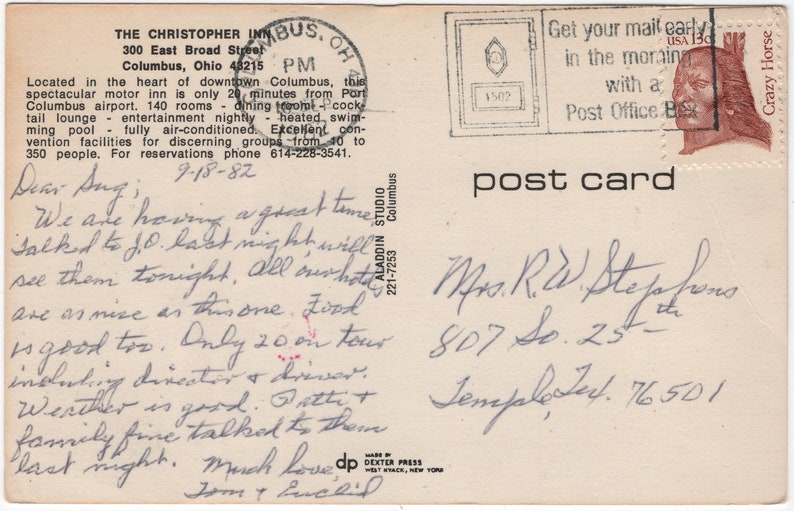 THE CHRISTOPHER INN
300 East Broad Street
Columbus, Ohio 43215
Located in the heart of downtown Columbus, this
spectacular motor inn is only 20 minutes from Port
Columbus airport. 140 rooms - dining room - cock-
tail lounge - entertainment nightly - heated swim-
ming pool - fully air-conditioned. Excellent con-
vention facilities for discerning groups from 10 to
350 people. For reservations phone 614-228-3541.
COLUMBUS, OH
PM
Get your mail early
in the morning
with a
Post Office Box
4502
USA 13c
Crazy Horse
post card
9-18-82
Dear Sug;
We are having a great time.
Talked to J.O. last night, will
see them tonight. All our hotels
are as nice as this one. Food
is good too. Only 20 on tour
including director & driver.
Weather is good. Patti &
family fine talked to them
last night. Much love,
Tom & Euclid
ALADDIN STUDIO
Columbus
221-7253
Mrs. R. W. Stephens
807 So. 25th
Temple, Tex. 76501
dp
MADE BY
DEXTER PRESS
WEST NYACK, NEW YORK